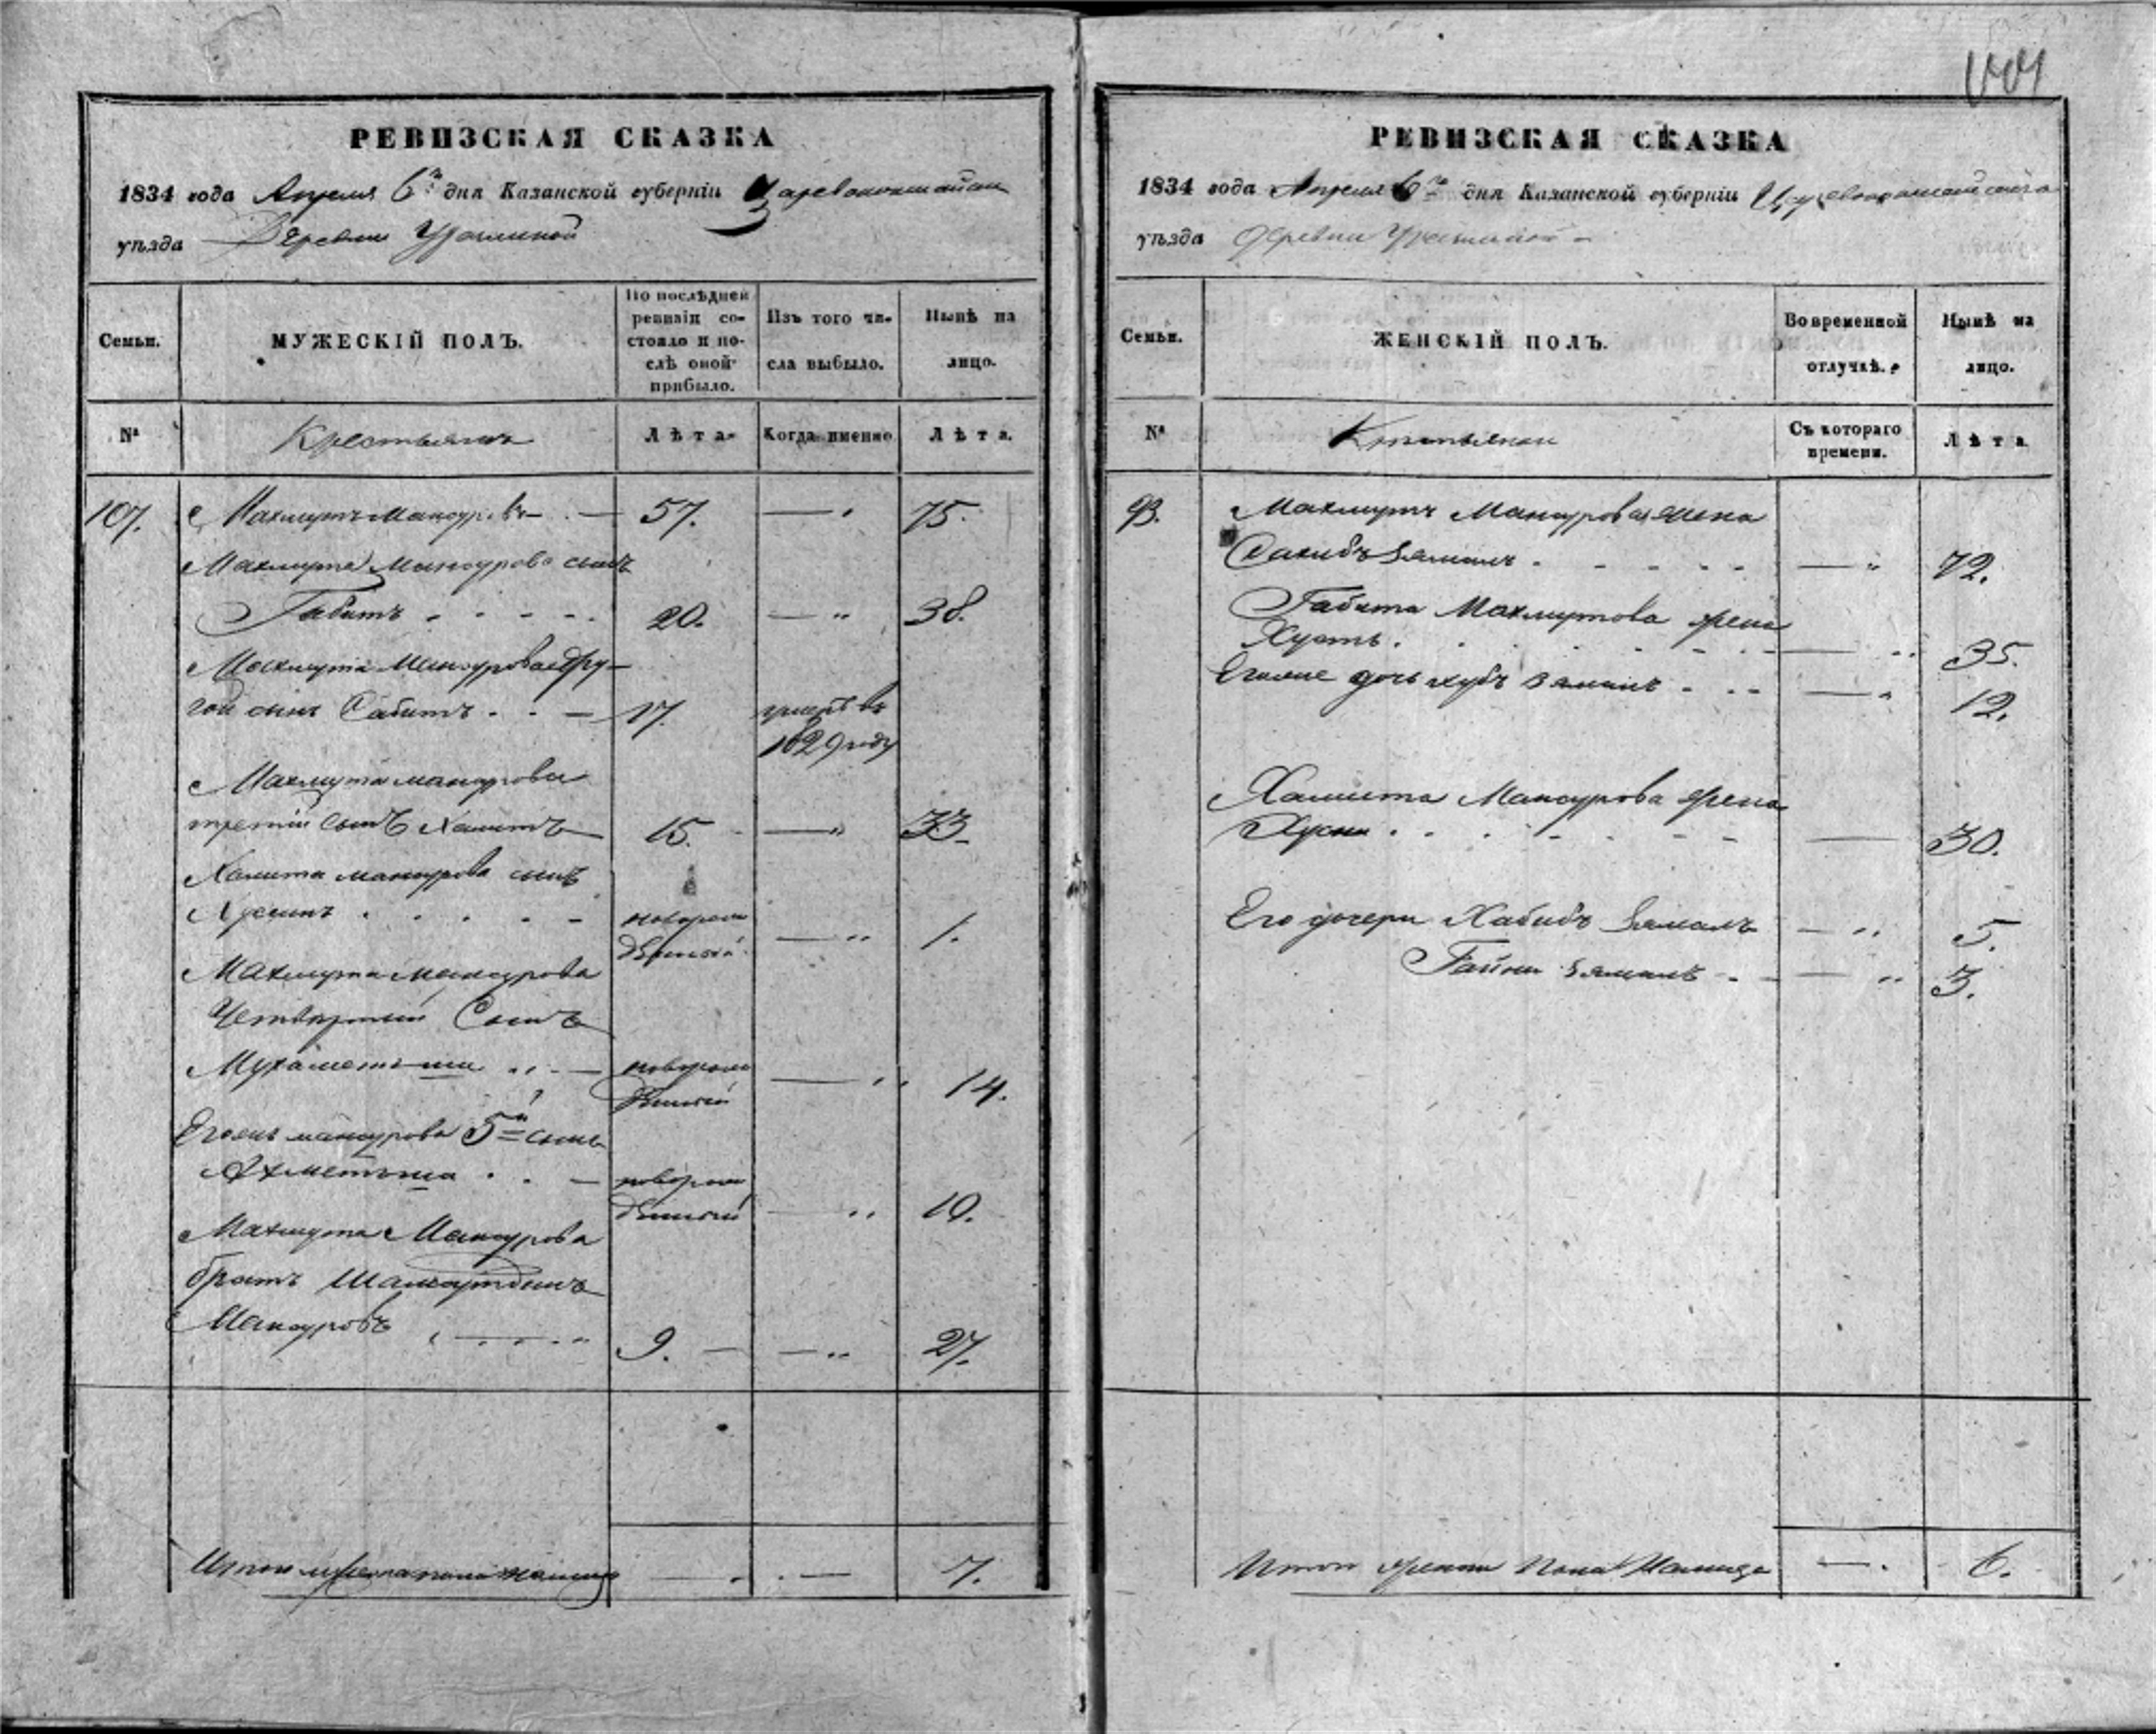 РЕВИЗСКАЯ СКАЗКА
1834 года Апреля 6го дня Казанской губерніи Царевококшайск
уѣзда Деревни
Семьи.
МУЖЕСКІЙ ПОЛЪ.
По послѣдней ревизіи состояло и послѣ оной прибыло.
Изъ того числа выбыло.
Нынѣ на лицо.
№
Крестьянъ
Лѣта.
Когда именно
Лѣта.
107. Махмутъ Мансуровъ 57. 75.
Махмута Мансурова сынъ
Габитъ 20. 38.
Махмута Мансурова дру-
гой сынъ Сабитъ 17. умеръ въ
1829 году
Махмута Мансурова
третій сынъ Хамитъ 15. 33
Хамита Мансурова сынъ
Хусеинъ новорож
денный 1.
Махмута Мансурова
Четвертый Сынъ
Мухаметьша новорож
денный 14.
Егожъ Мансурова 5й сынъ
Ахметьша новорож
денный 10.
Махмута Мансурова
братъ
Мансуровъ 9. 27.
Итого мужеска пола налицо 7.
РЕВИЗСКАЯ СКАЗКА
1834 года Апреля 6го дня Казанской губерніи Царевококшайскаго
уѣзда деревни
Семьи.
ЖЕНСКІЙ ПОЛЪ.
Во временной отлучкѣ.
Нынѣ на лицо.
№
Крестьянки
Съ котораго времени.
Лѣта
93. Махмутъ Мансурова жена
Сахибъ Зямалъ 72.
Габита Махмутова жена
35.
дочь Зямалъ 12.
Хамита Мансурова жена
Хусни 30.
Его дочери Хабибъ Зямалъ 5.
Гайни Зямалъ 3.
Итого женска пола налицо 6.